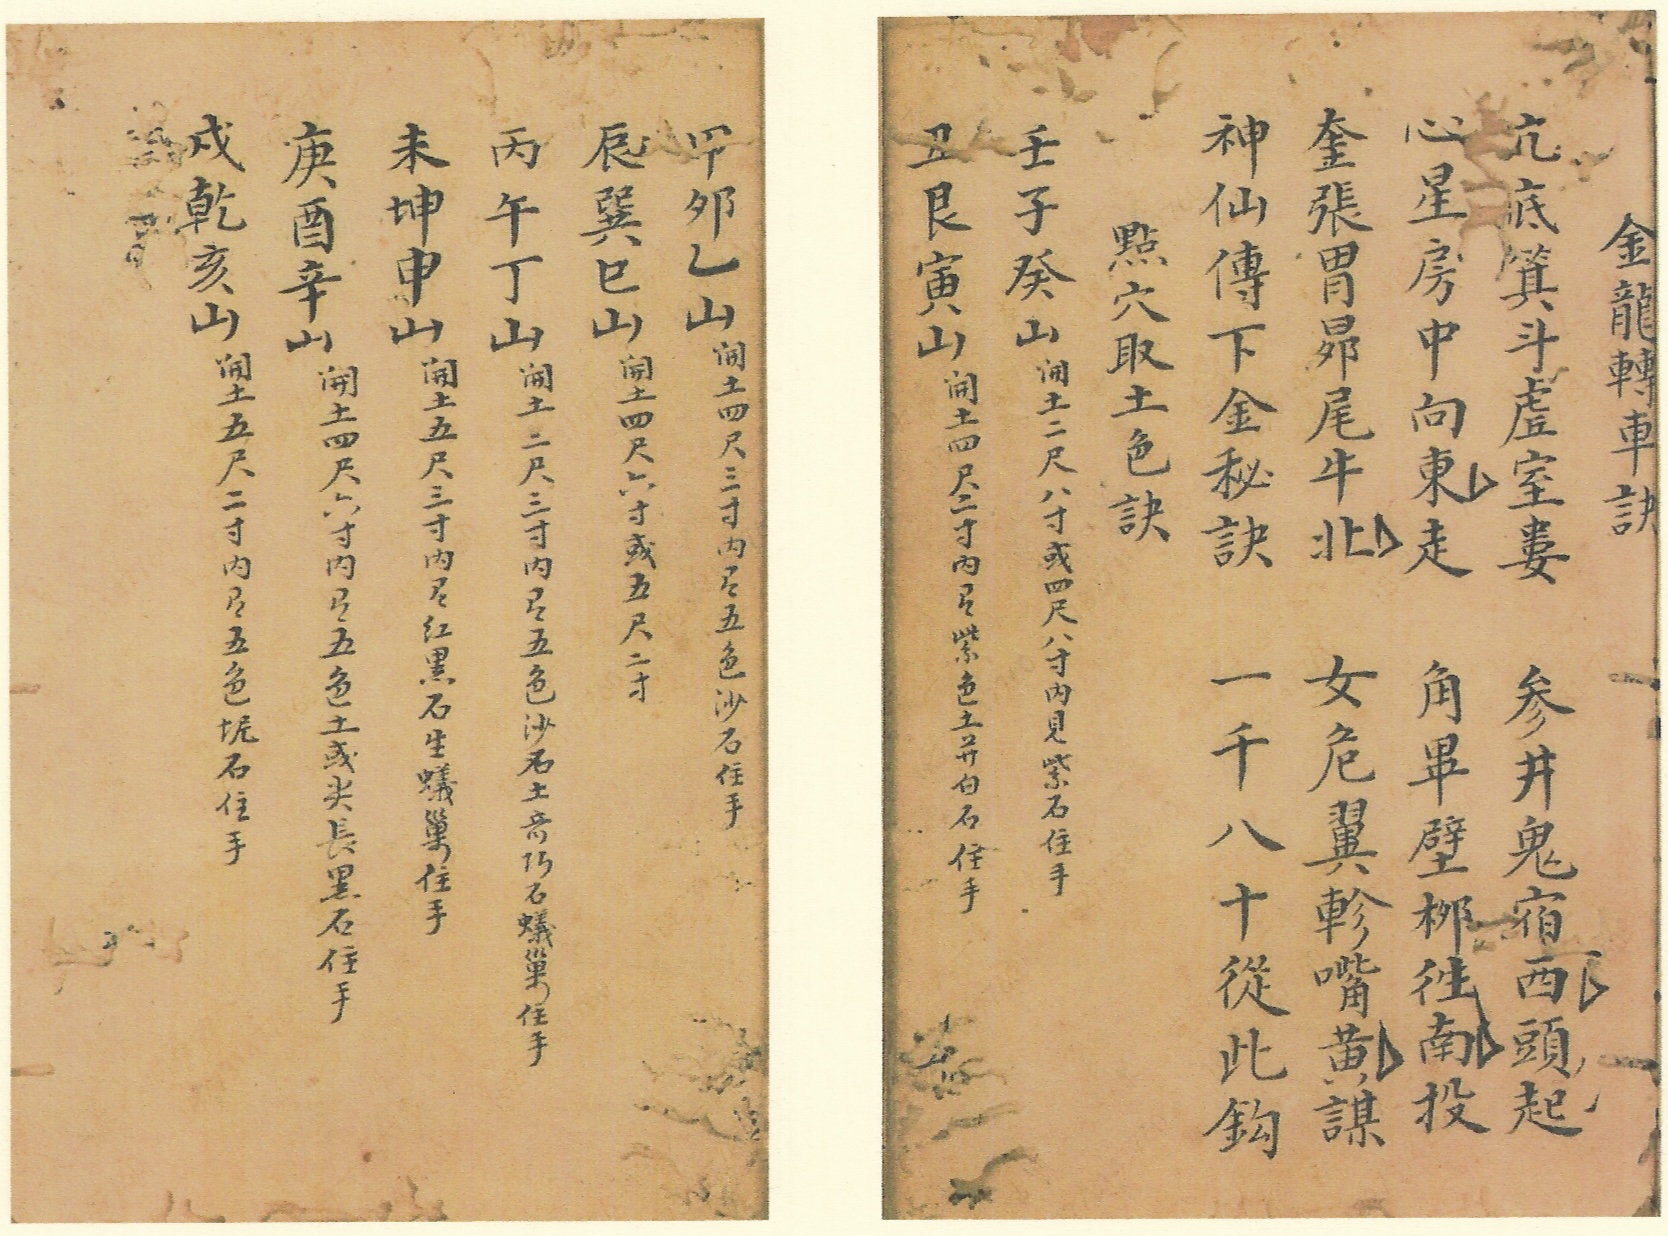 金龍轉車訣
亢底箕斗虛室婁 参井鬼宿西頭起
心星房中向東走 角畢壁柳往南投
奎張胃昴尾牛北 女危翼軫嘴黄謀
神仙傳下金秘訣 一千八十從此鈎
點穴取土色訣
壬子癸山 開土二尺八寸或四尺八寸内見紫石住手
丑艮寅山 開土四尺二寸内見紫色土并白石住手
甲卯乙山 開土四尺三寸内見五色沙石住手
辰巽巳山 開土四尺六寸或五尺二寸
丙午丁山 開土二尺三寸内見五色沙石土石蟻巢住手
未坤申山 開土五尺三寸内見红黑石生蟻巢住手
庚酉辛山 開土四尺六寸内見五色土或尖長黑石住手
戌乾亥山 開土五尺二寸内見五色坭石住手